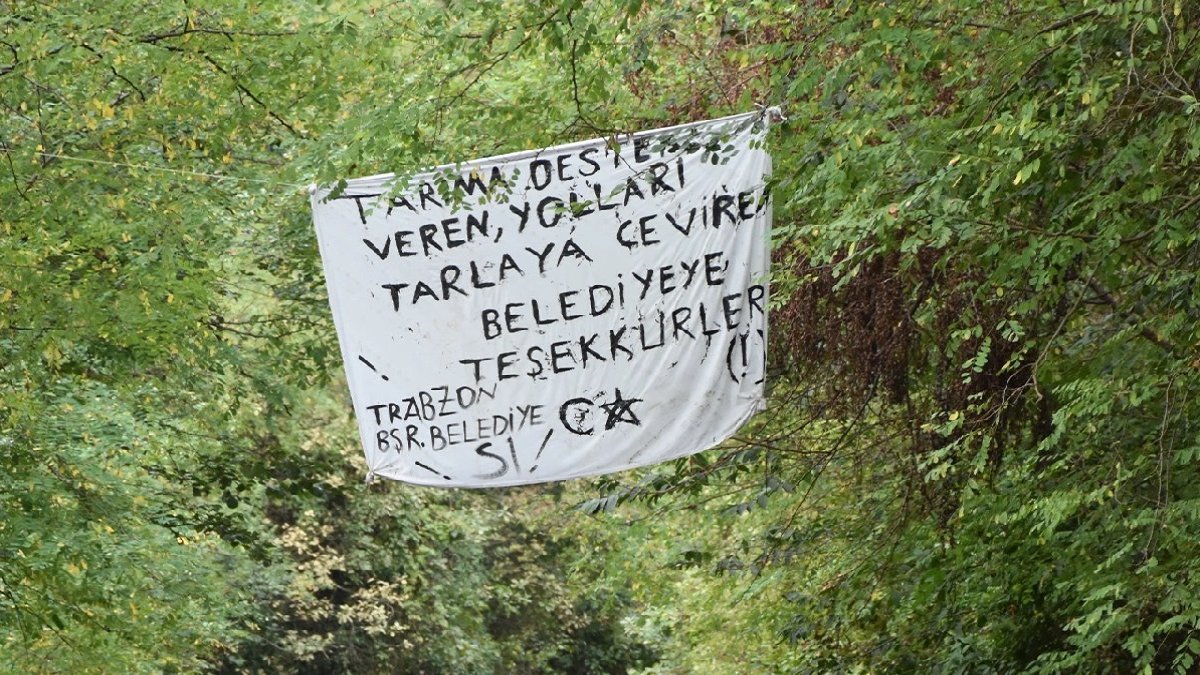 TARIMA DESTEK
VEREN, YOLLARI
TARLAYA ÇEVİREN
BELEDİYEYE
TEŞEKKÜRLER
(!)
TRABZON
BŞR. BELEDİYE
Sİ